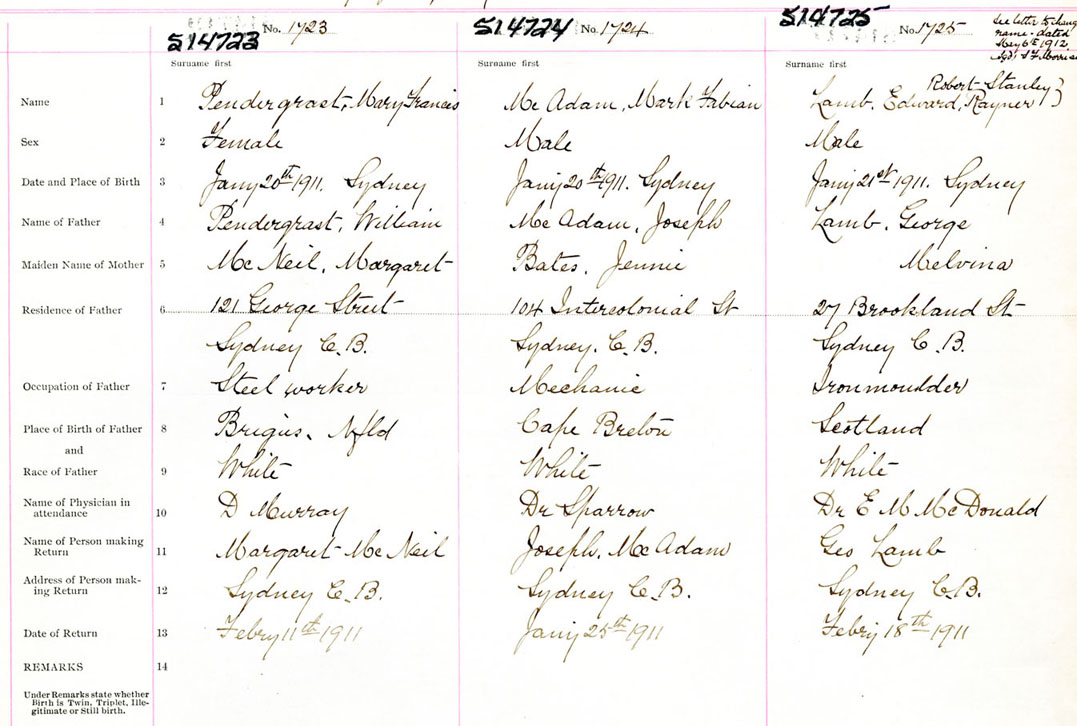 514723 No. 1723 514724 No. 1724 514725 No. 1725
See letter to change
name - dated
May 6th 1912
Surname first Surname first Surname first
Robert Stanley }
Name 1 Pendergrast, Mary Francis Mc Adam, Mark Fabian Lamb, Edward, Rayner
Sex 2 Female Male Male
Date and Place of Birth 3 Jany 20th 1911. Sydney Jany 20th 1911. Sydney Jany 21st 1911. Sydney
Name of Father 4 Pendergrast, William Mc Adam, Joseph Lamb, George
Maiden Name of Mother 5 Mc Neil, Margaret Bates, Jennie Melvina
Residence of Father 6 121 George Street 104 Intercolonial St 27 Brookland St
Sydney C.B. Sydney. C.B. Sydney C.B.
Occupation of Father 7 Steel worker Mechanic Ironmoulder
Place of Birth of Father 8 Brigus, Nfld Cape Breton Scotland
and
Race of Father 9 White White White
Name of Physician in
attendance 10 D Murray Dr Sparrow Dr E M McDonald
Name of Person making
Return 11 Margaret Mc Neil Joseph, Mc Adam Geo Lamb
Address of Person mak-
ing Return 12 Sydney C.B. Sydney C.B. Sydney C.B.
Date of Return 13 Febry 11th 1911 Jany 25th 1911 Febry 18th 1911
REMARKS 14
Under Remarks state whether
Birth is Twin, Triplet, Ille-
gitimate or Still birth.